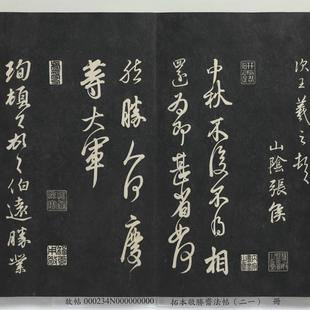 次王羲之頓首
山陰張侯
中秋不復不得相
還為即甚省如何
然勝人何慶
等大軍
珣頓首頓首伯遠勝業
故帖 000234N000000000 拓本敬勝齋法帖（二一） 冊